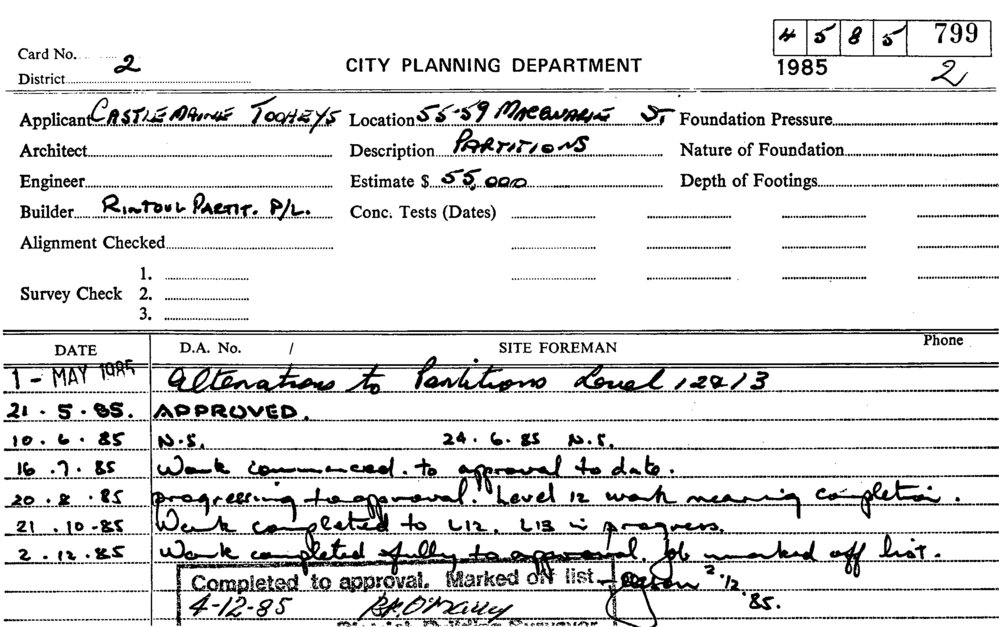 4 5 8 5 799
Card No. 2
CITY PLANNING DEPARTMENT
1985 2
District
Applicant CASTLEMAINE TOOHEYS Location 55-59 MACQUARIE ST. Foundation Pressure
Architect Description PARTITIONS Nature of Foundation
Engineer Estimate $ 55,000 Depth of Footings
Builder RINTOUL PARTIT. P/L. Conc. Tests (Dates)
Alignment Checked
1.
Survey Check 2.
3.
DATE D.A. No. / SITE FOREMAN Phone
1 - MAY 1985 Alterations to Partitions Level 12 & 13
21 . 5 . 85. APPROVED.
10 . 6 . 85 N.S. 24 . 6 . 85 N.S.
16 . 7 . 85 Work commenced. to approval to date.
20 . 8 . 85 progressing to approval. Level 12 work nearing completion.
21 . 10 - 85 Work completed to L12. L13 in progress.
2 . 12 . 85 Work completed fully to approval. Job marked off list.
Completed to approval. Marked off list 2.12.85.
4-12-85
District Building Surveyor